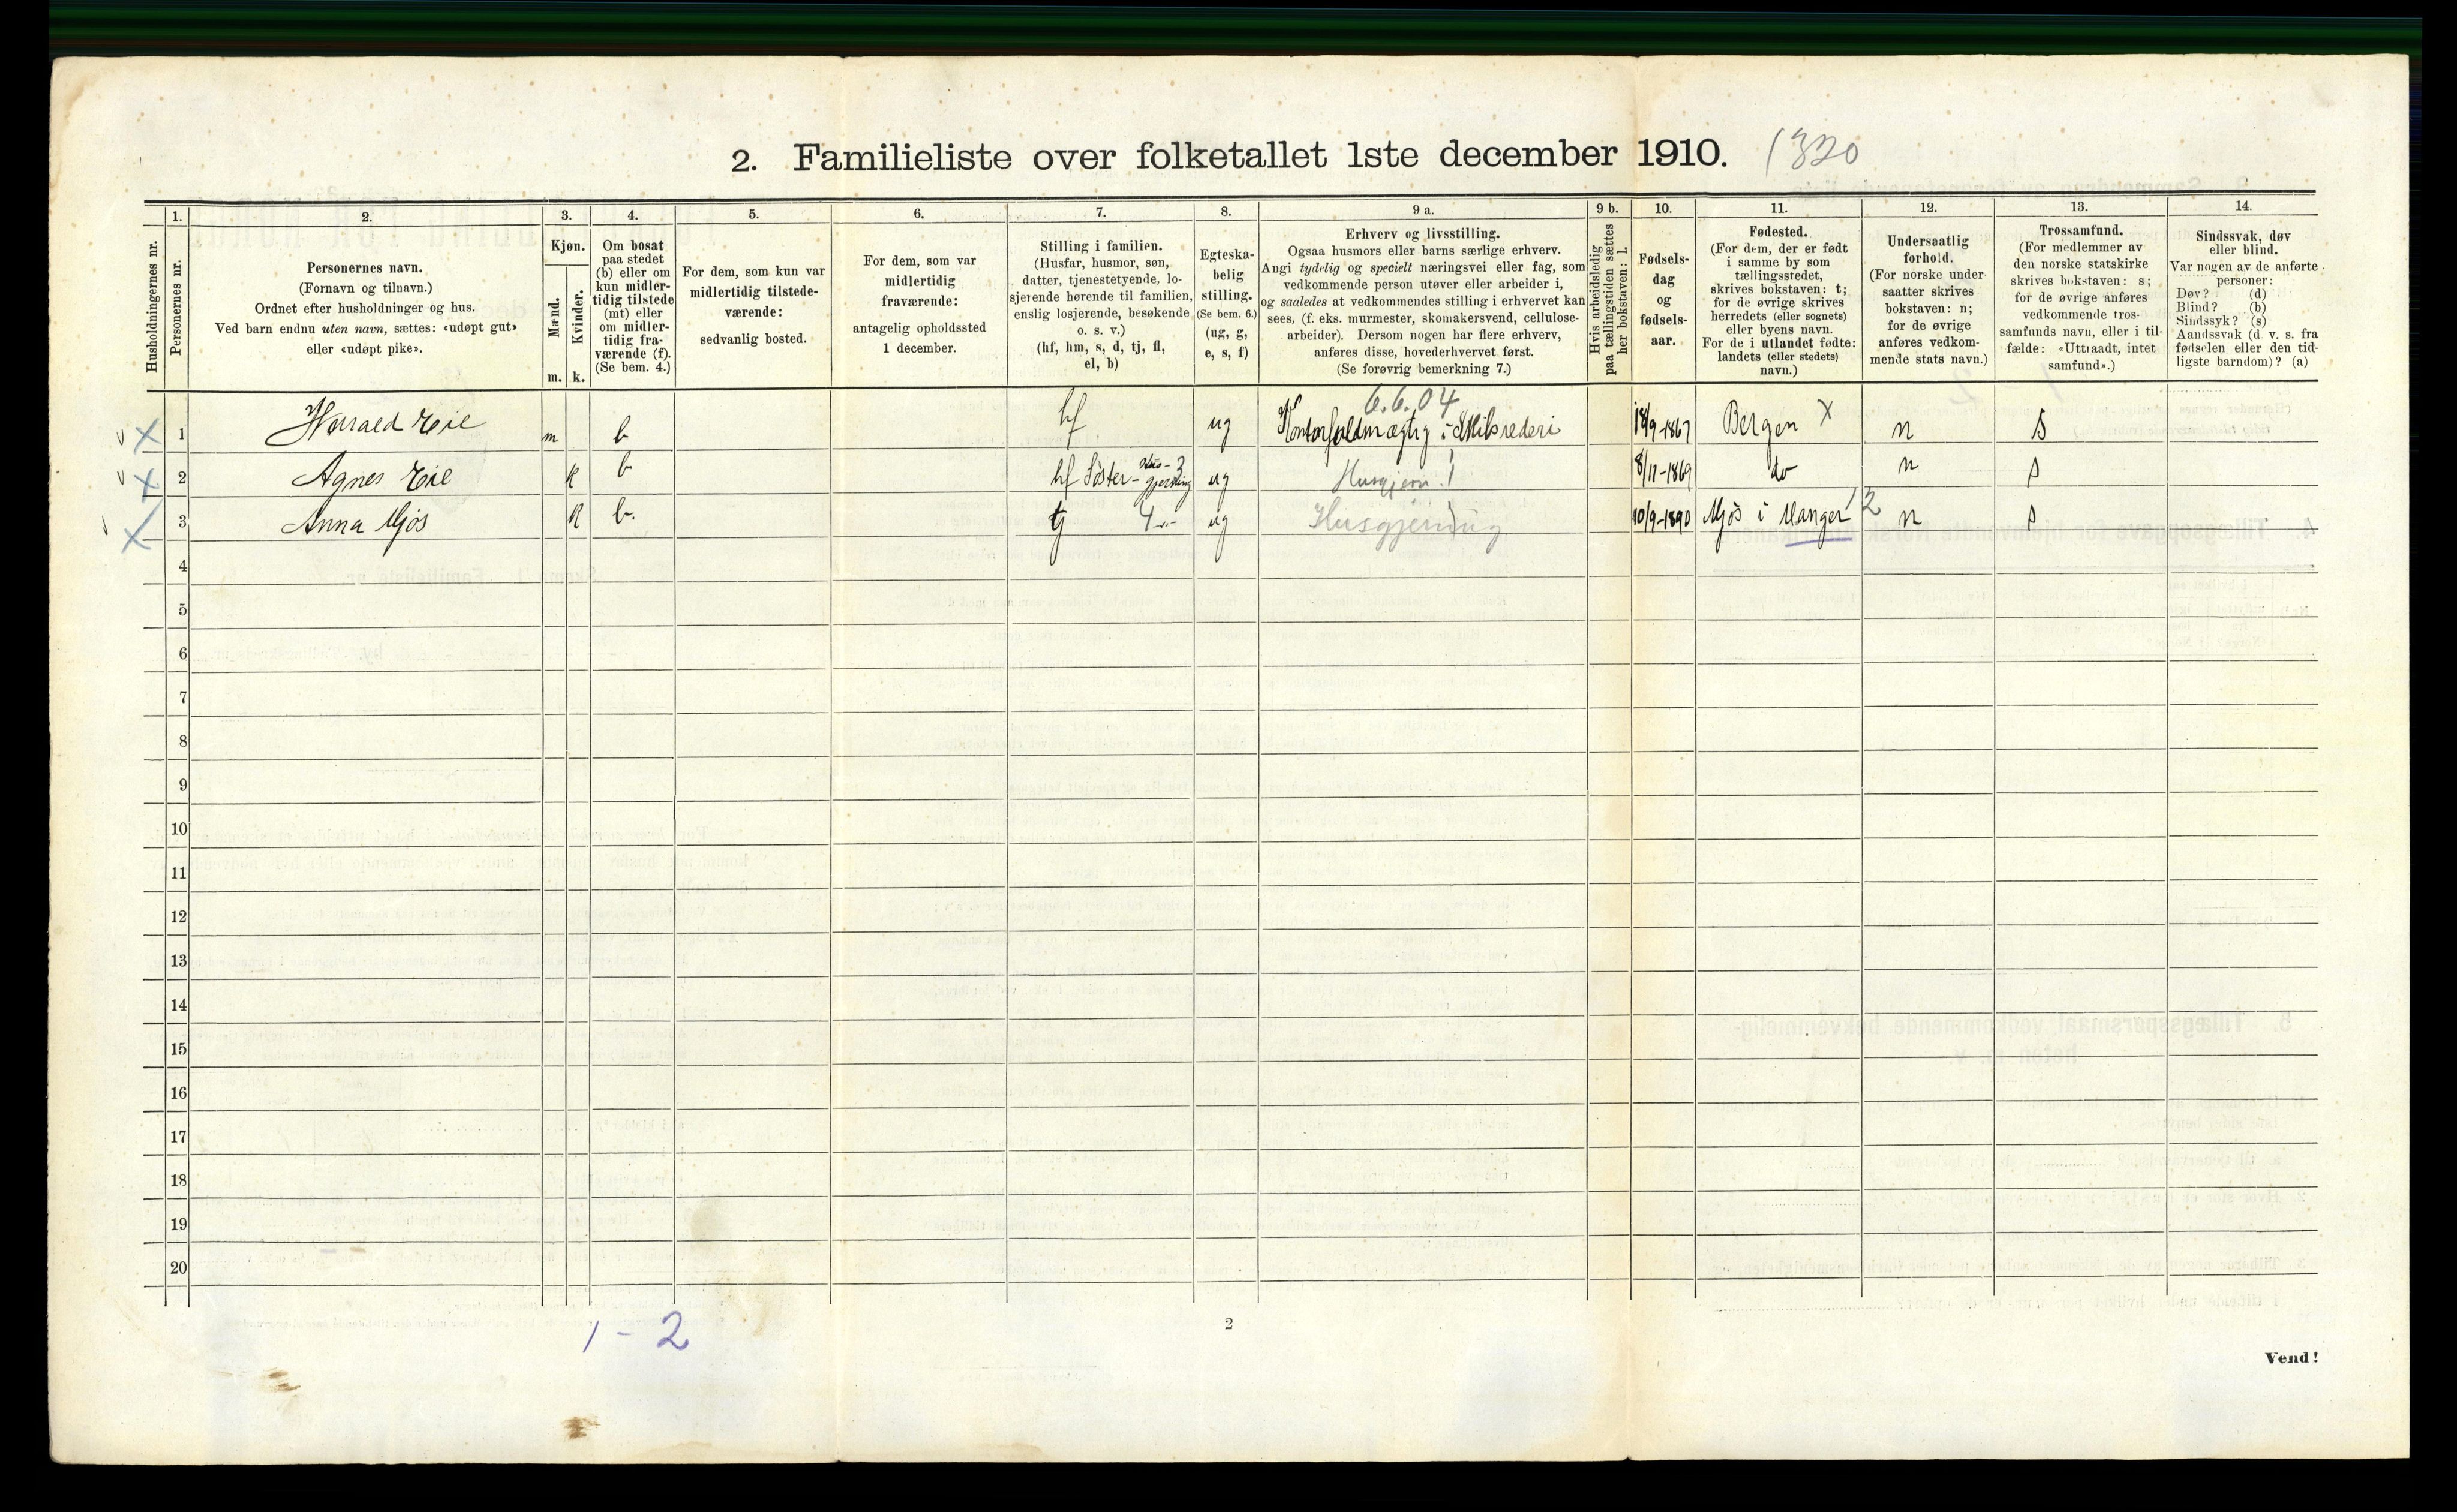 2. Familieliste over folketallet 1ste december 1910. 1320
Husholdningernes nr.
1.
Personernes nr.
2.
Personernes navn.
(Fornavn og tilnavn.)
Ordnet efter husholdninger og hus.
Ved barn endnu uten navn, sættes: «udøpt gut»
eller «udøpt pike».
3.
Kjøn.
Mænd.
Kvinder.
m. k.
4.
Om bosat
paa stedet
(b) eller om
kun midler-
tidig tilstede
(mt) eller
om midler-
tidig fra-
værende (f).
(Se bem. 4.)
5.
For dem, som kun var
midlertidig tilstede-
værende:
sedvanlig bosted.
6.
For dem, som var
midlertidig
fraværende:
antagelig opholdssted
1 december.
7.
Stilling i familien.
(Husfar, husmor, søn,
datter, tjenestetyende, lo-
sjerende hørende til familien,
enslig losjerende, besøkende
o. s. v.)
(hf, hm, s, d, tj, fl,
el, b)
8.
Egteska-
belig
stilling.
(Se bem. 6.)
(ug, g,
e, s, f)
9 a.
Erhverv og livsstilling.
Ogsaa husmors eller barns særlige erhverv.
Angi tydelig og specielt næringsvei eller fag, som
vedkommende person utøver eller arbeider i,
og saaledes at vedkommendes stilling i erhvervet kan
sees, (f. eks. murmester, skomakersvend, cellulose-
arbeider). Dersom nogen har flere erhverv,
anføres disse, hovederhvervet først.
(Se forøvrig bemerkning 7.)
9 b.
Hvis arbeidsledig
paa tællingstiden sættes
her bokstaven: l.
10.
Fødsels-
dag
og
fødsels-
aar.
11.
Fødested.
(For dem, der er født
i samme by som
tællingsstedet,
skrives bokstaven: t;
for de øvrige skrives
herredets (eller sognets)
eller byens navn.
For de i utlandet fødte:
landets (eller stedets)
navn.)
12.
Undersaatlig
forhold.
(For norske under-
saatter skrives
bokstaven: n;
for de øvrige
anføres vedkom-
mende stats navn.)
13.
Trossamfund.
(For medlemmer av
den norske statskirke
skrives bokstaven: s;
for de øvrige anføres
vedkommende tros-
samfunds navn, eller i til-
fælde: «Uttraadt, intet
samfund».)
14.
Sindssvak, døv
eller blind.
Var nogen av de anførte
personer:
Døv? (d)
Blind? (b)
Sindssyk? (s)
Aandssvak (d. v. s. fra
fødselen eller den tid-
ligste barndom)? (a)
6.6.04
1 Harald Eie m b hf ug Kontorfuldmægtig i Skibsrederi 18/9-1867 Bergen X n s
2 Agnes Eie k b hf Søster - Hus-gjerning 3 ug Husgjern. 8/11-1869 do n s
3 Anna Mjøs k b. tj 4 ug Husgjerning 10/9-1890 Mjøs i Manger 12 n s
4
5
6
7
8
9
10
11
12
13
14
15
16
17
18
19
20
1 - 2
2
Vend!